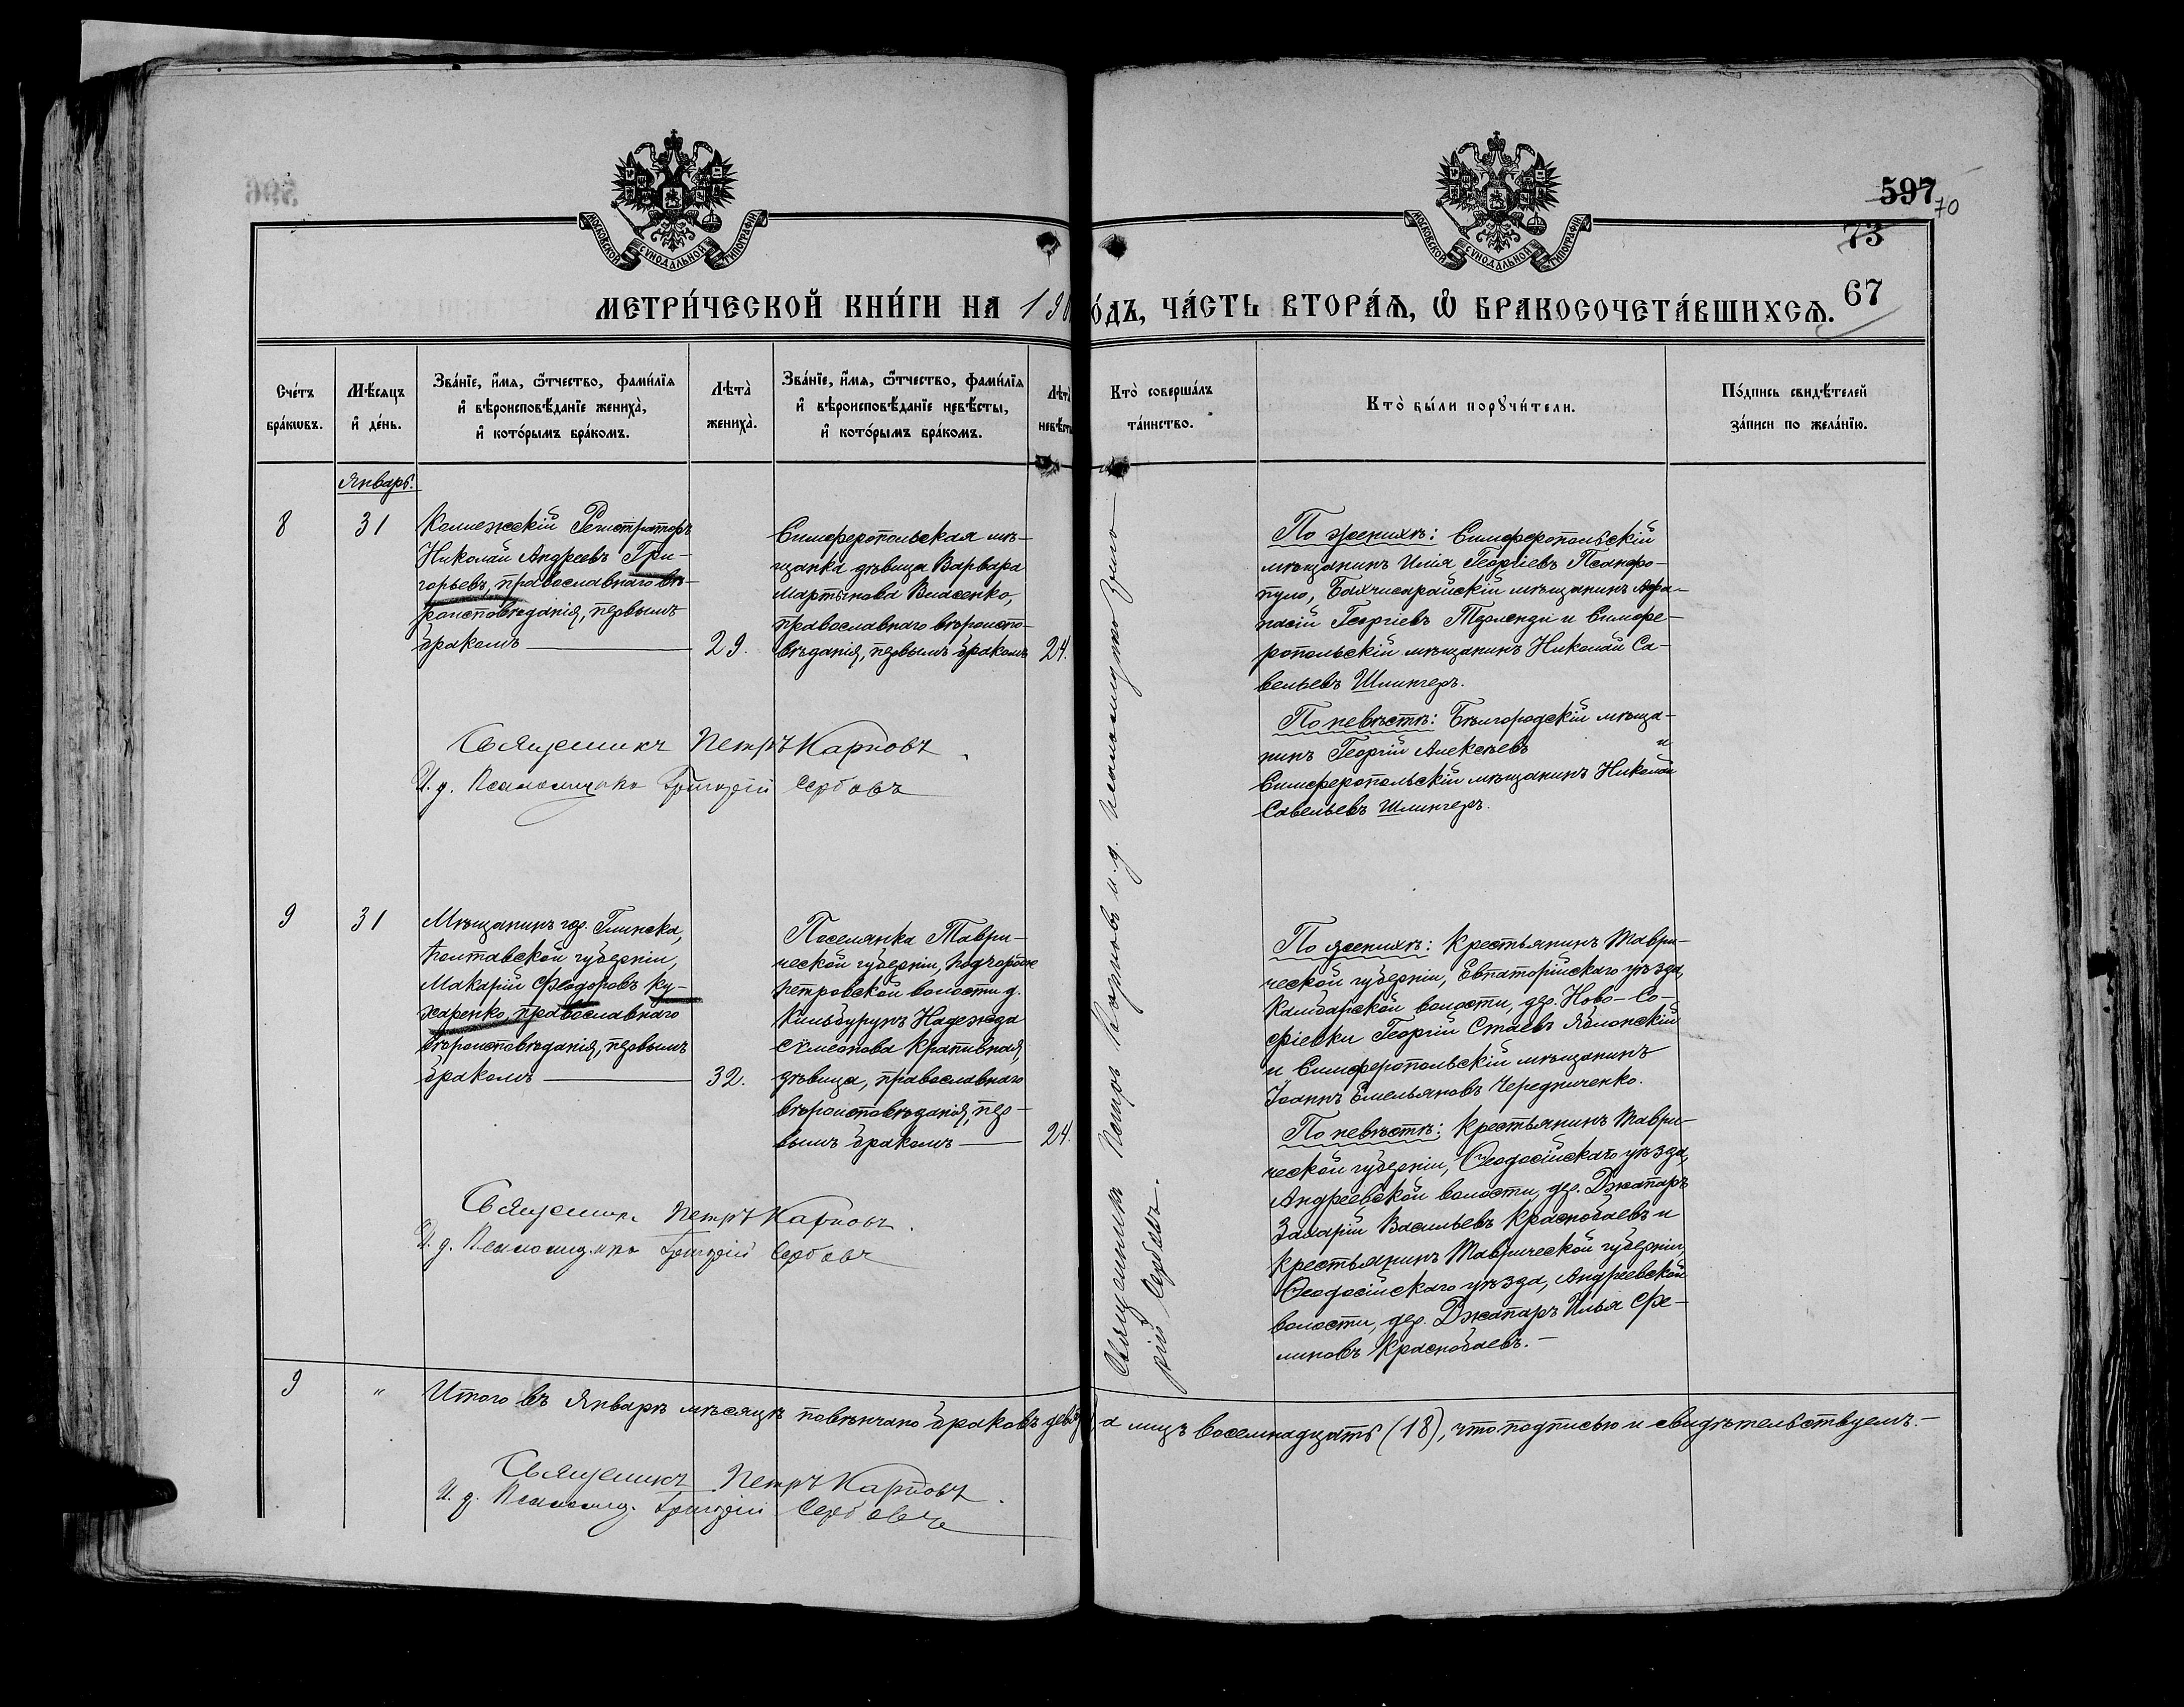 МОСКОВСКОЙ СѴНОДАЛЬНОЙ ТИПОГРАФІИ
МОСКОВСКОЙ СѴНОДАЛЬНОЙ ТИПОГРАФІИ
596
597
70
73
67
МЕТРИ́ЧЕСКОЙ КНИ́ГИ НА 19
О́ДЪ, ЧА́СТЬ ВТОРА́Ѧ, Ѿ БРАКОСОЧЕТА́ВШИХСѦ.
Сче́тъ
бра́кѡвъ.
Мѣ́сяцъ
и҆ де́нь.
Зва́нїе, и҆́мя, ѻ҆́тчество, фами́лїя
и҆ вѣроисповѣ́данїе жениха̀,
и҆ кото́рымъ бра́комъ.
Лѣта̀
жениха̀.
Зва́нїе, и҆́мя, ѻ҆́тчество, фами́лїя
и҆ вѣроисповѣ́данїе невѣ́сты,
и҆ кото́рымъ бра́комъ.
Лѣта̀
невѣ́сты
Кто̀ соверша́лъ
та́инство.
Кто̀ бы́ли порꙋчи́тели.
По́дпись свидѣ́телей
за́писи по жела́нїю.
Январь.
8
31
Коллежскій Регистраторъ
Николай Андреевъ Гри-
горьевъ, православнаго вѣ-
роисповѣданія, первымъ
бракомъ
29.
Симферопольская мѣ-
щанка дѣвица Варвара
Мартынова Власенко,
православнаго вѣроиспо-
вѣданія, первымъ бракомъ
24.
По женихѣ: Симферопольскій
мѣщанинъ Илія Георгіевъ Псанфо-
пуло, Бахчисарайскій мѣщанинъ Афа-
насій Георгіевъ Терленди и Симфе-
ропольскій мѣщанинъ Николай Са-
вельевъ Шлингеръ.
По невѣстѣ: Бѣлгородскій мѣща-
нинъ Георгій Алексѣевъ и
Симферопольскій мѣщанинъ Николай
Савельевъ Шлингеръ.
Священникъ Петръ Карповъ
И. д. Псаломщика Григорій Сербовъ
9
31
Мѣщанинъ гор. Глинска,
Полтавской губерніи,
Макарій Феодоровъ Ку-
харенко, православнаго
вѣроисповѣданія, первымъ
бракомъ
32.
Поселянка Таври-
ческой губерніи, Подгородне
Петровской волости д.
Кильбурунъ Надежда
Сѵмеонова Крапивная,
дѣвица, православнаго
вѣроисповѣданія, пер-
вымъ бракомъ
24.
По женихѣ: Крестьянинъ Таври-
ческой губерніи, Евпаторійскаго уѣзда,
Камбарской волости, дер. Ново-Со-
фіевки Георгій Стаевъ Яблонскій
и Симферопольскій мѣщанинъ
Іоаннъ Емельяновъ Чередниченко.
По невѣстѣ: Крестьянинъ Таври-
ческой губерніи, Ѳеодосійскаго уѣзда,
Андреевской волости, дер. Джапаръ
Захарій Васильевъ Краснобаевъ и
крестьянинъ Таврической губерніи,
Ѳеодосійскаго уѣзда, Андреевской
волости, дер. Джапаръ Илья Фе-
ликовъ Краснобаевъ.
Священникъ Петръ Карповъ.
И. д. Псаломщика Григорій Сербовъ
Священникъ Петръ Карповъ и. д. псаломщика
рій Сербовъ.
9
"
Итого въ Январѣ мѣсяцѣ повѣнчано браковъ девять, а лицъ восемнадцать (18), что подписью и свидѣтельствуемъ.
Священникъ Петръ Карповъ.
И. д. Псаломщ. Григорій Сербовъ